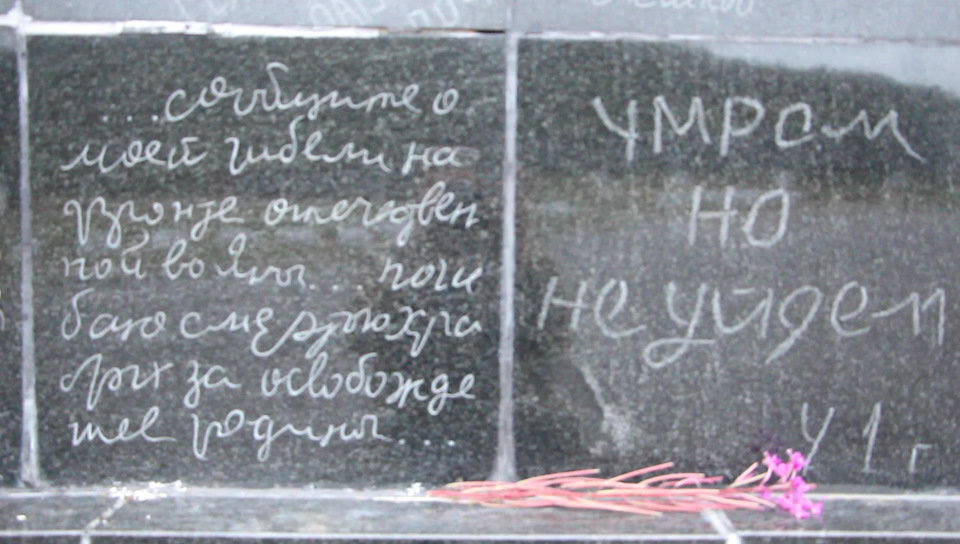 ....сообщите о
моей гибели на
фронте отечествен
ной войны... поги
баю смертью хра
брых за освобожде
ние родины....
умрем
но
не уйдем